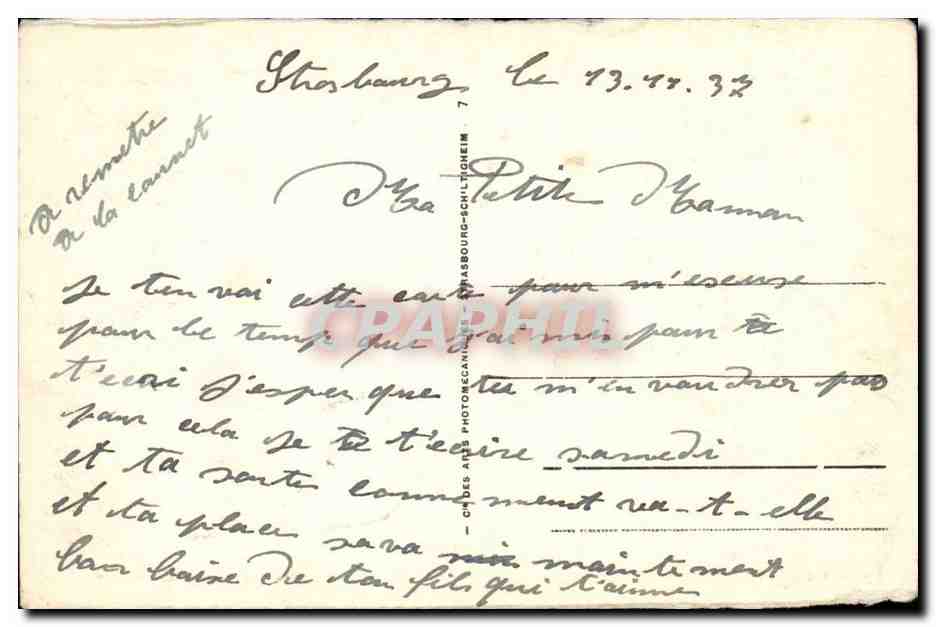 Strasbourg le 13.11.37
a remetre
a la cannet
Ma Petite Maman
Je t'en voi cette carte pour m'escuse
pour le temp que j'ai mis pour te
t'ecri j'esper que tu m'en vaudrer pas
pour cela je te t'ecrire samedi
et ta sante comme ment va-t-elle
et ta place sava mis maintement
bon baise de ton fils qui t'aime
7
— Cie DES ARTS PHOTOMECANIQUES - STRASBOURG-SCHILTIGHEIM
CPAPHIL